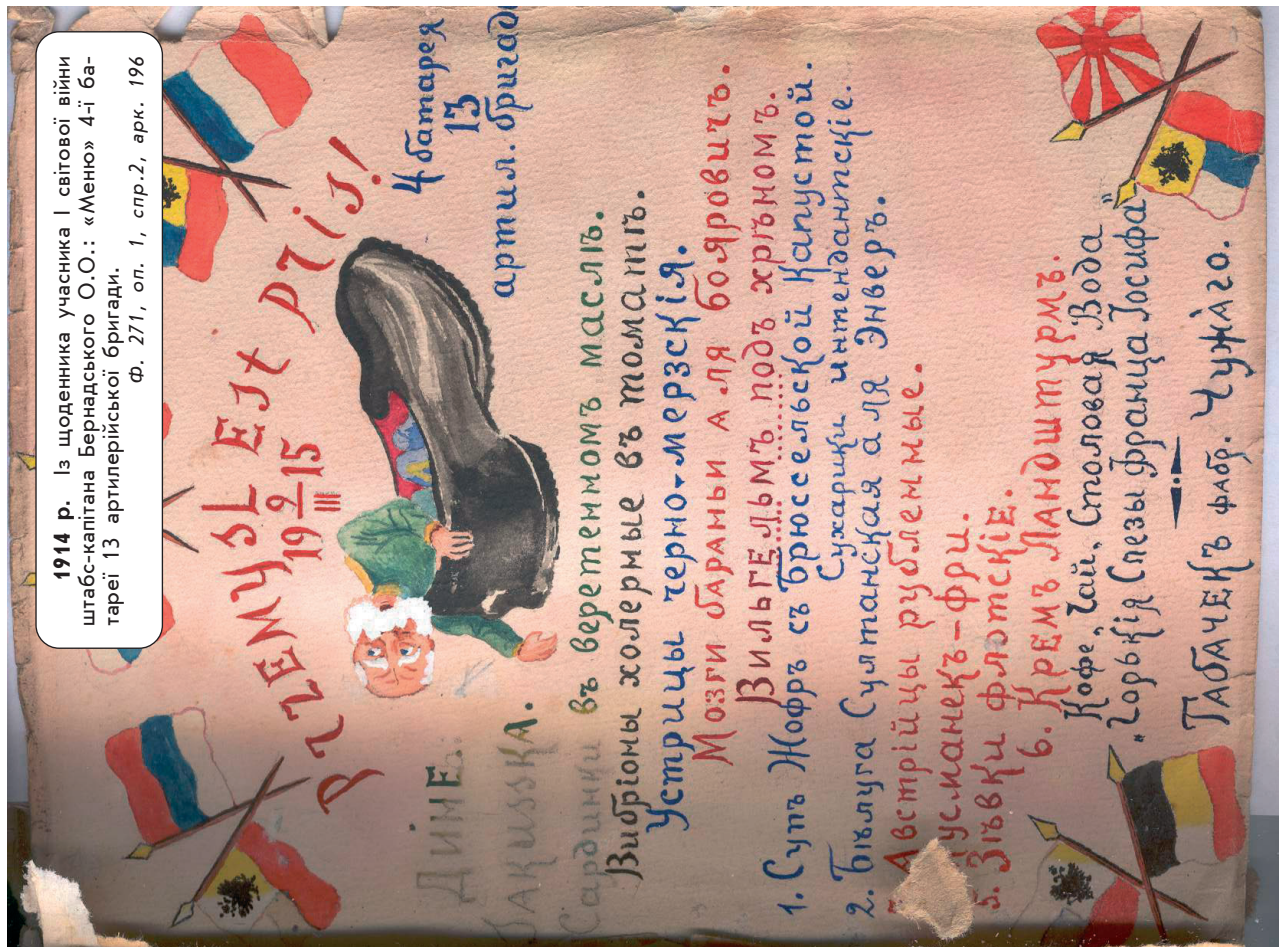 1914 р. Із щоденника учасника І світової війни
штабс-капітана Бернадського О.О.: «Меню» 4-ї ба-
тареї 13 артилерійської бригади.
Ф. 271, оп. 1, спр.2, арк. 196
PRZEMYSL EST PRIS!
19 9/III 15
4 батарея
13
артил. бригад
ДИНЕ.
ЗАКУССКА.
Сардинки въ веретенномъ маслѣ.
Вибріоны холерные въ томатѣ.
Устрицы черно-мерзскія.
Мозги бараньи а ля бояровичъ.
ВильГЕльмъ подъ хрѣномъ.
1. Супъ Жофръ съ Брюссельской Капустой.
Сухарики интендантскіе.
2. Бѣлуга Султанская а ля Энверъ.
Австрійцы рубленные.
усманекъ-фри.
5. Зѣвки флотскіЕ.
6. Кремъ Ландштурмъ.
Кофе, Чай, Столовая Вода
„Горькія Слезы Франца Іосифа"
Табачекъ фабр. Чужаго.